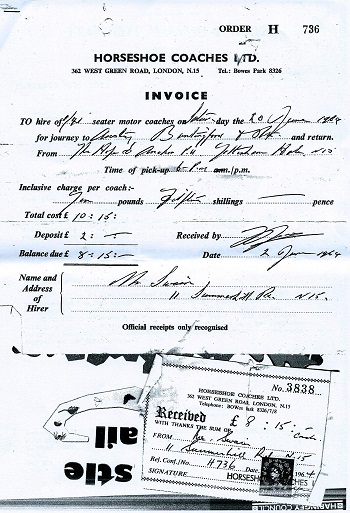 ORDER H 736
HORSESHOE COACHES LTD.
362 WEST GREEN ROAD, LONDON, N.15 Tel.: Bowes Park 8326
INVOICE
TO hire of seater motor coaches on day the 20 June 1964
for journey to and return.
From Tottenham N15
Time of pick-up 6 p.m. am./p.m.
Inclusive charge per coach:-
Ten pounds Fifteen shillings — pence
Total cost £ 10 : 15 :
Deposit £ 2 : —
Received by
Balance due £ 8 : 15 : —
Date 2 Jan 1964
Name and
Address
of
Hirer
Mr Swain
11 Summerhill Rd. N15.
Official receipts only recognised
No. 3838
HORSESHOE COACHES LTD.
362 WEST GREEN ROAD, LONDON, N.15
Telephone: BOWes Park 8326/7/8
Received £ 8 : 15 : —
WITH THANKS THE SUM OF
Cash.
FROM Mr. Swain
11 Summerhill Rd N15
Ref. Conf./No. H736 Date 1964
SIGNATURE HORSESHOE COACHES
stle
ail
HARINGEY COUNCIL